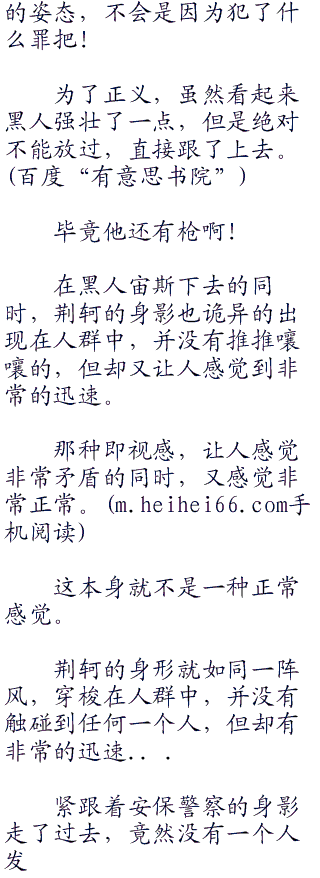 的姿态，不会是因为犯了什
么罪把！
为了正义，虽然看起来
黑人强壮了一点，但是绝对
不能放过，直接跟了上去。
(百度“有意思书院”)
毕竟他还有枪啊！
在黑人宙斯下去的同
时，荆轲的身影也诡异的出
现在人群中，并没有推推嚷
嚷的，但却又让人感觉到非
常的迅速。
那种即视感，让人感觉
非常矛盾的同时，又感觉非
常正常。(m.heihei66.com手
机阅读)
这本身就不是一种正常
感觉。
荆轲的身形就如同一阵
风，穿梭在人群中，并没有
触碰到任何一个人，但却有
非常的迅速...
紧跟着安保警察的身影
走了过去，竟然没有一个人
发